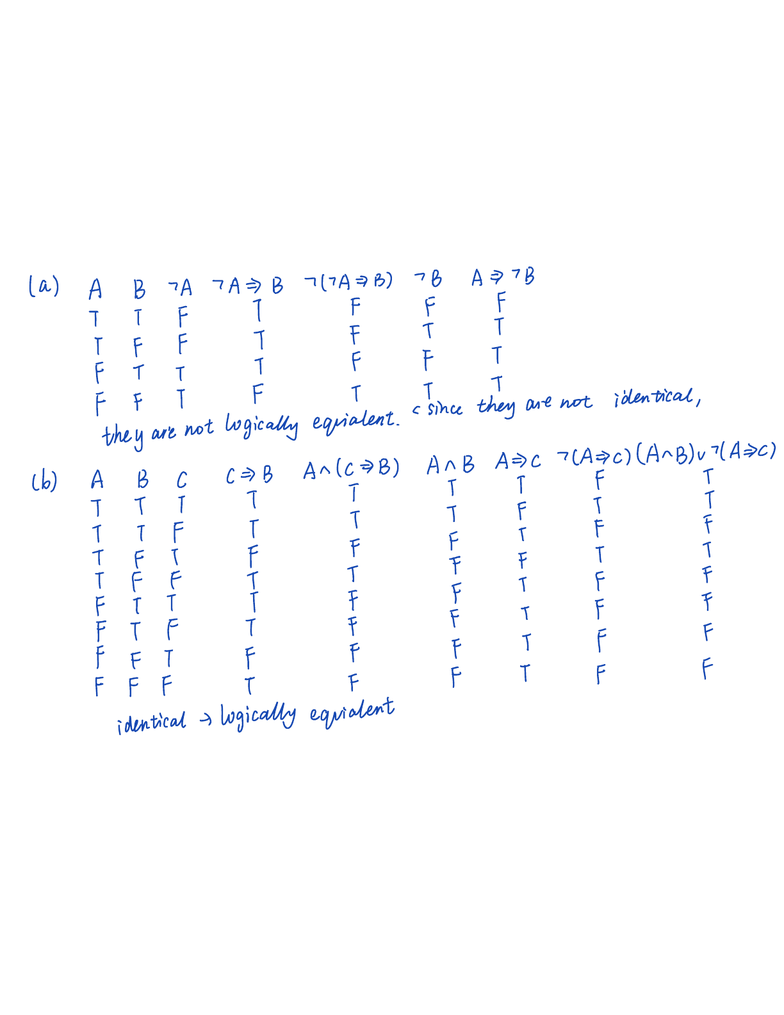 (a) A B ¬A ¬A⇒B ¬(¬A⇒B) ¬B A⇒¬B
T T F T F F F
T F F T F T T
F T T T F F T
F F T F T T T
they are not logically equialent. (since they are not identical,
(b) A B C C⇒B A∧(C⇒B) A∧B A⇒C ¬(A⇒C) (A∧B)∨¬(A⇒C)
T T T T T T T F T
T T F T T T F T T
T F T F F F T F F
T F F T T F F T T
F T T T F F T F F
F T F T F F T F F
F F T F F F T F F
F F F T F F T F F
identical → logically equialent